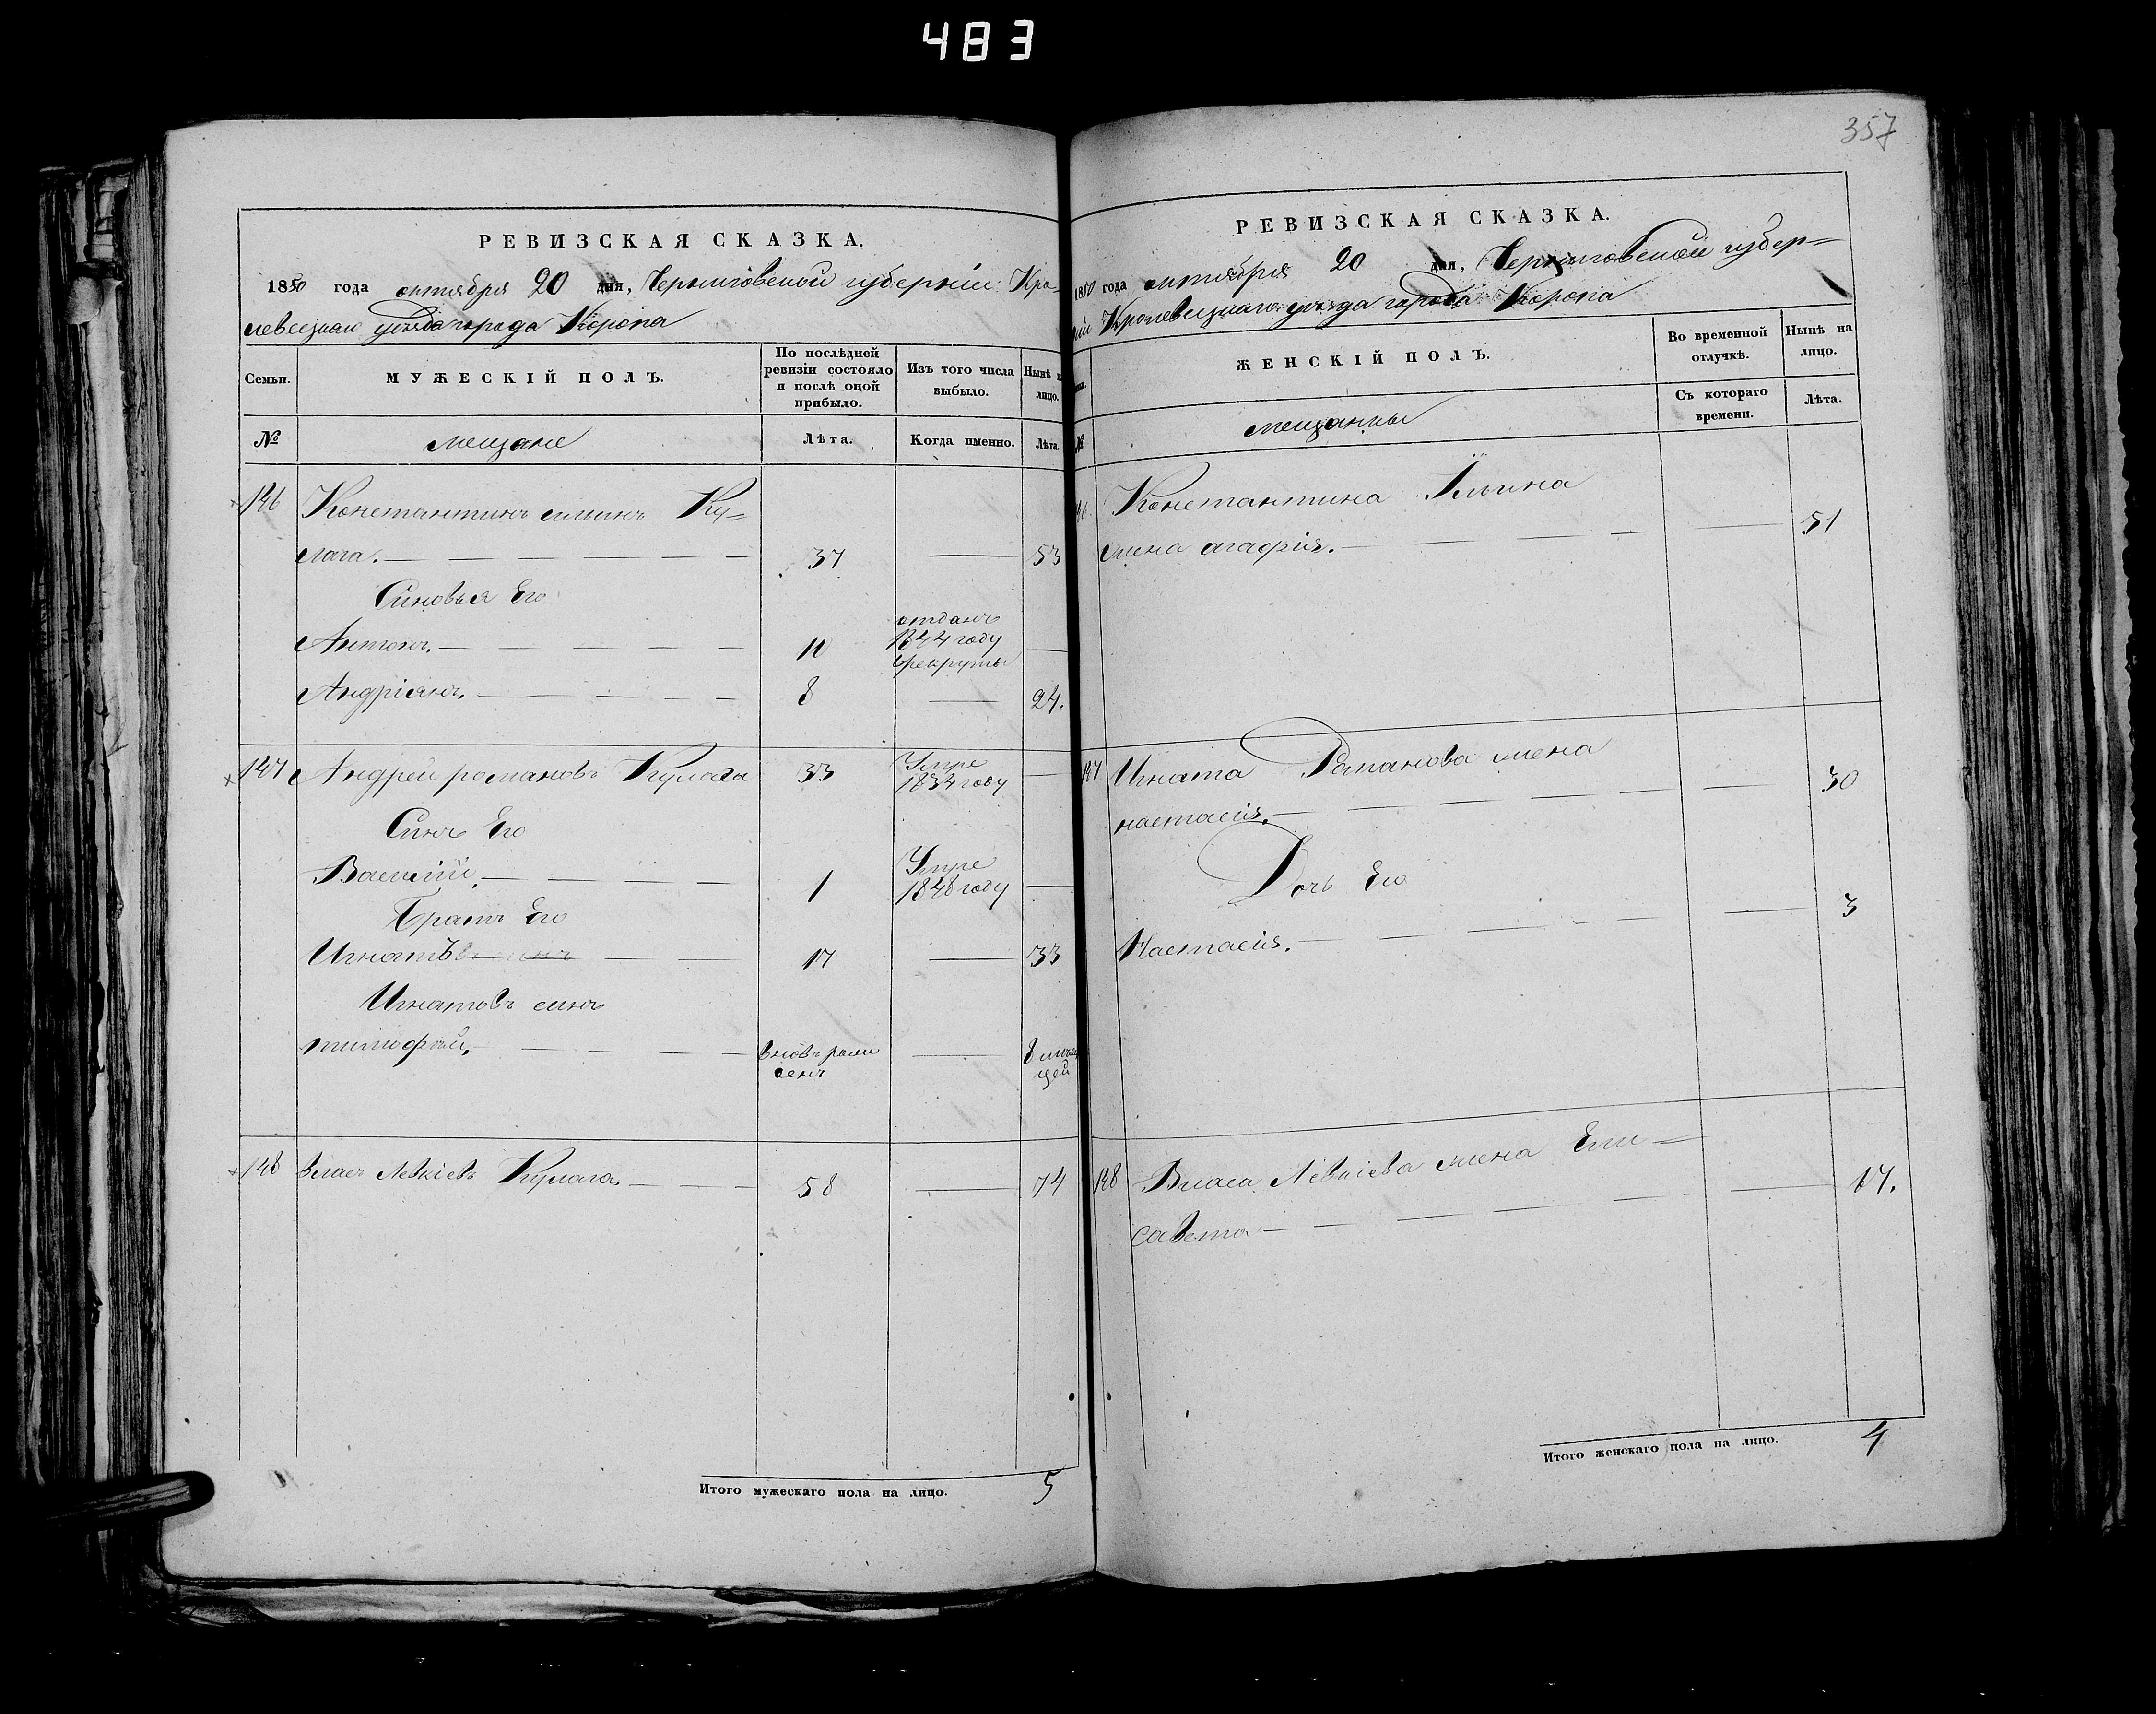 483
РЕВИЗСКАЯ СКАЗКА.
1850 года октября 20 дня, Черниговской губерніи Кро-
левецкаго уѣзда города Коропа
Семьи.
МУЖЕСКІЙ ПОЛЪ.
По послѣдней ревизіи состояло и послѣ оной прибыло.
Изъ того числа выбыло.
Нынѣ на лицо.
№
мещане
Лѣта.
Когда именно.
Лѣта.
146 Константинъ Ку=
лага. 37 53
Синовья Его
Антонъ. 10 отданъ 1844 году врекруты
Андріянъ. 8 24.
147 Андрей романовъ Кулага 33 Умре 1834 году
Синъ Его
Василій. 1 Умре 1848 году
Братъ Его
Игнатъ 17 33
Игнатовъ синъ
тимофѣй. вновь 8
148 Власъ Левкіевъ Кулага. 58 74
Итого мужескаго пола на лицо. 5
357
РЕВИЗСКАЯ СКАЗКА.
1850 года октября 20 дня, Черниговской губер=
ніи Кролевецкаго уѣзда города Коропа
ЖЕНСКІЙ ПОЛЪ.
Во временной отлучкѣ.
Нынѣ на лицо.
№
мещанки
Съ котораго времени.
Лѣта.
146 Константина Ильина
жена агафія. 51
147 Игната Романова жена
настасія. 30
Дочь Его
Настасія. 3
148 Власа Левкіева жена Ели=
савета 17.
Итого женскаго пола на лицо. 4